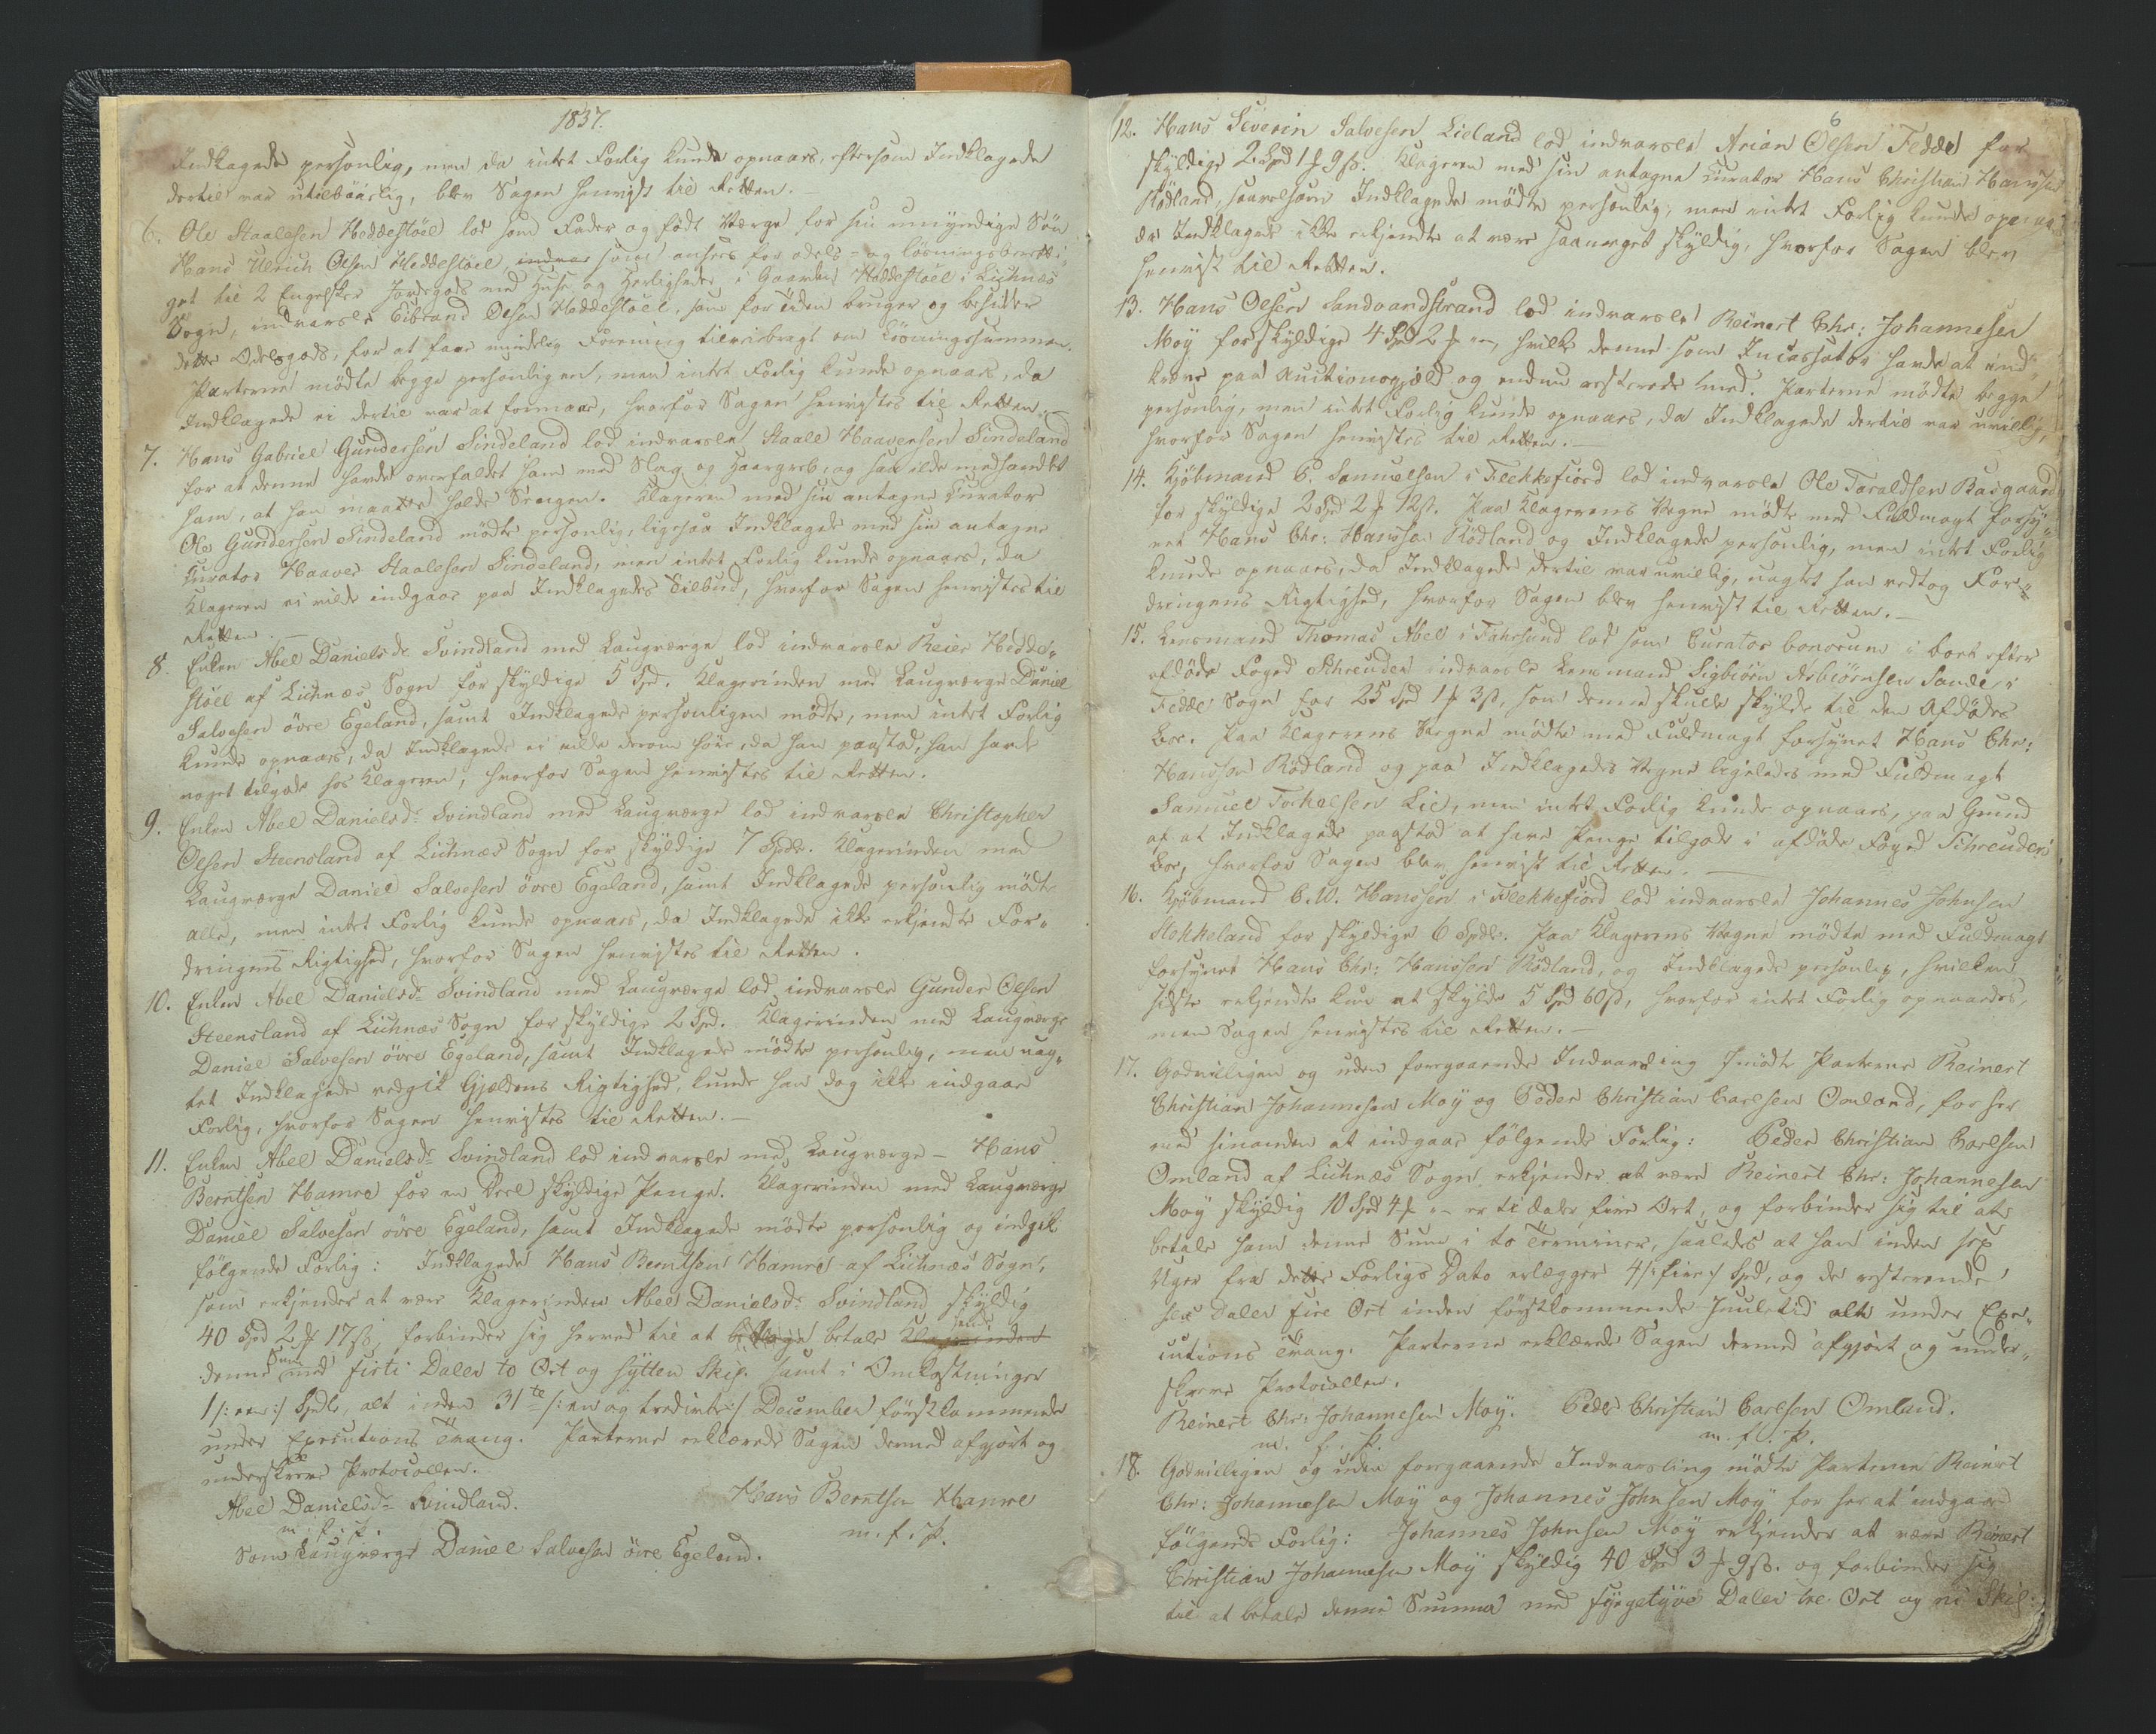 1837.
Indklagede personlig, men da intet Forlig kunde opnaaes, eftersom Indklagede
dertil var utilböielig, blev Sagen henvist til Retten.
6. Ole Staalesen Heddestöel lod som Fader og födt Værge for sin umyndige Sön
Hans Ulrich Olsen Heddestöel som ansees for odels- og lösningsberetti-
get til 2 Engelsker Jordegods med Huse og Herligheder i Gaarden Heddestöel i Lichnæs
Sogn, indvarsle Eibrand Olsen Heddestöel, som for Tiden bruger og besidder
dette Odelsgods, for at faae mindelig Forening tilveiebragt om Lösningssummen.
Parterne mödte begge personligen, men intet Forlig kunde opnaaes, da
Indklagede ei dertil var at formaae, hvorfor Sagen henvistes til Retten.
7. Hans Gabriel Gundersen Sindeland lod indvarsle Staale Haaversen Sindeland
for at denne havde overfaldet ham med Slag og Haargreb, og saa ilde medhandlet
ham, at han maatte holde Sengen. Klageren med sin antagne Curator
Ole Gundersen Sindeland mödte personlig, ligesaa Indklagede med sin antagne
Curator Haaver Staalesen Sindeland, men intet Forlig kunde opnaaes, da
Klageren ei vilde indgaae paa Indklagedes Tilbud, hvorfor Sagen henvistes til
Retten.
8. Enken Abel Danielsdr. Svindland med Laugværge lod indvarsle Reier Hedde-
stöel af Lichnæs Sogn for skyldige 5 Spd. Klagerinden med Laugværge Daniel
Salvesen övre Egeland, samt Indklagede personligen mödte, men intet Forlig
kunde opnaaes, da Indklagede ei vilde derom höre, da han paastod, han havde
noget tilgode hos Klageren, hvorfor Sagen henvistes til Retten.
9. Enken Abel Danielsdr. Svindland med Laugværge lod indvarsle Christopher
Olsen Steensland af Lichnæs Sogn for skyldige 7 Spdlr. Klagerinden med
Laugværge Daniel Salvesen övre Egeland, samt Indklagede personlig mödte
alle, men intet Forlig kunde opnaaes, da Indklagede ikke erkjendte For-
dringens Rigtighed, hvorfor Sagen henvistes til Retten.
10. Enken Abel Danielsdr. Svindland med Laugværge lod indvarsle Gunder Olsen
Steensland af Lichnæs Sogn for skyldige 2 Spd. Klagerinden med Laugværge
Daniel Salvesen övre Egeland, samt Indklagede mödte personlig, men uag-
tet Indklagede vedgik Gjældens Rigtighed, kunde han dog ikke indgaae
Forlig, hvorfor Sagen henvistes til Retten.
11. Enken Abel Danielsdr. Svindland lod indvarsle med Laugværge – Hans
Berntsen Hamre for en Deel skyldige Penge. Klagerinden med Laugværge
Daniel Salvesen övre Egeland, samt Indklagede mödte personlig og indgik
fölgende Forlig: Indklagede Hans Berntsen Hamre af Lichnæs Sogn,
som erkjender at være Klagerinden Abel Danielsdr. Svindland skyldig
40 Spd 2 # 17 ß, forbinder sig herved til at betale hende Klagerinden
denne Sum med firti Daler to Ort og sytten Skil. samt i Omkostninger
1 /: een :/ Spdlr, alt inden 31te /: en og tredivte :/ December förstkommende
under Executions Tvang. Parterne erklærede Sagen dermed afgjort og
underskrev Protocollen.
Abel Danielsdr. Svindland. Hans Berntsen Hamre
m. f. P. m. f. P.
Som Laugværge Daniel Salvesen övre Egeland.
6
12. Hans Severin Salvesen Lieland lod indvarsle Arian Olsen Fedde for
skyldige 2 Spd 1 # 9 ß. Klageren med sin antagne Curator Hans Christian Hanssen
Rödland, saavelsom Indklagede mödte personlig, men intet Forlig kunde opnaaes
da Indklagede ikke erkjendte at være saameget skyldig, hvorfor Sagen blev
henvist til Retten.
13. Hans Olsen Sandvandstrand lod indvarsle Reinert Chr: Johannesen
Moÿ for skyldige 4 Spd 2 #, hvilke denne som Incassator havde at ind-
kræve paa Auctionsgjæld og endnu resterede med. Parterne mödte begge
personlig, men intet Forlig kunde opnaaes, da Indklagede dertil var uvillig,
hvorfor Sagen henvistes til Retten.
14. Kjöbmand C. Samuelsen i Flekkefiord lod indvarsle Ole Taraldsen Basgaard
for skyldige 2 Spd 2 # 12 ß. Paa Klagerens Vegne mödte med Fuldmagt forsy-
net Hans Chr: Hanssen Rödland og Indklagede personlig, men intet Forlig
kunde opnaaes, da Indklagede dertil var uvillig, uagtet han vedtog For-
dringens Rigtighed, hvorfor Sagen blev henvist til Retten.
15. Lensmand Thomas Abel i Fahrsund lod som Curator bonorum i Boet efter
afdöde Foged Schreuder indvarsle Lensmand Sigbiörn Asbiörnsen Sande i
Fedde Sogn for 25 Spd 1 # 3 ß, som denne skulle skylde til den Afdödes
Boe. Paa Klagerens Vegne mödte med Fuldmagt forsynet Hans Chr:
Hanssen Rödland og paa Indklagedes Vegne ligeledes med Fuldmagt
Samuel Torkelsen Lie, men intet Forlig kunde opnaaes, paa Grund
af at Indklagede paastod at have Penge tilgode i afdöde Foged Schreuders
Boe, hvorfor Sagen blev henvist til Retten.
16. Kjöbmand C. W. Hanssen i Flekkefiord lod indvarsle Johannes Johnsen
Stokkeland for skyldige 6 Spdlr. Paa Klagerens Vegne mödte med Fuldmagt
forsynet Hans Chr: Hanssen Rödland, og Indklagede personlig, hvilken
sidste erkjendte kun at skylde 5 Spd 60 ß, hvorfor intet Forlig opnaaedes,
men Sagen henvistes til Retten.
17. Godvilligen og uden foregaaende Indvarsling mödte Parterne Reinert
Christian Johannesen Moÿ og Peder Christian Carlsen Omland, for her
med hinanden at indgaae fölgende Forlig: Peder Christian Carlsen
Omland af Lichnæs Sogn erkjender at være Reinert Chr: Johannesen
Moÿ skyldig 10 Spd 4 # er ti daler fire Ort, og forbinder sig til at
betale ham denne Sum i to Terminer, saaledes at han inden sex
Uger fra dette Forligs Dato erlægger 4 /: fire :/ Spd, og de resterende
sex Daler fire Ort inden förstkommende Juuletid alt under Exe-
cutions Tvang. Parterne erklærede Sagen dermed afgjort og under-
skreve Protocollen.
Reinert Chr: Johannesen Moÿ. Peder Christian Carlsen Omland.
m. f. P. m. f. P.
18. Godvilligen og uden foregaaende Indvarsling mödte Parterne Reinert
Chr: Johannesen Moÿ og Johannes Johnsen Moÿ for her at indgaae
fölgende Forlig: Johannes Johnsen Moÿ erkjender at være Reinert
Christian Johannesen Moÿ skyldig 40 Spd 3 # 9 ß. og forbinder sig
til at betale denne Summa med fyrgetyve Daler tre Ort og ni Skil: